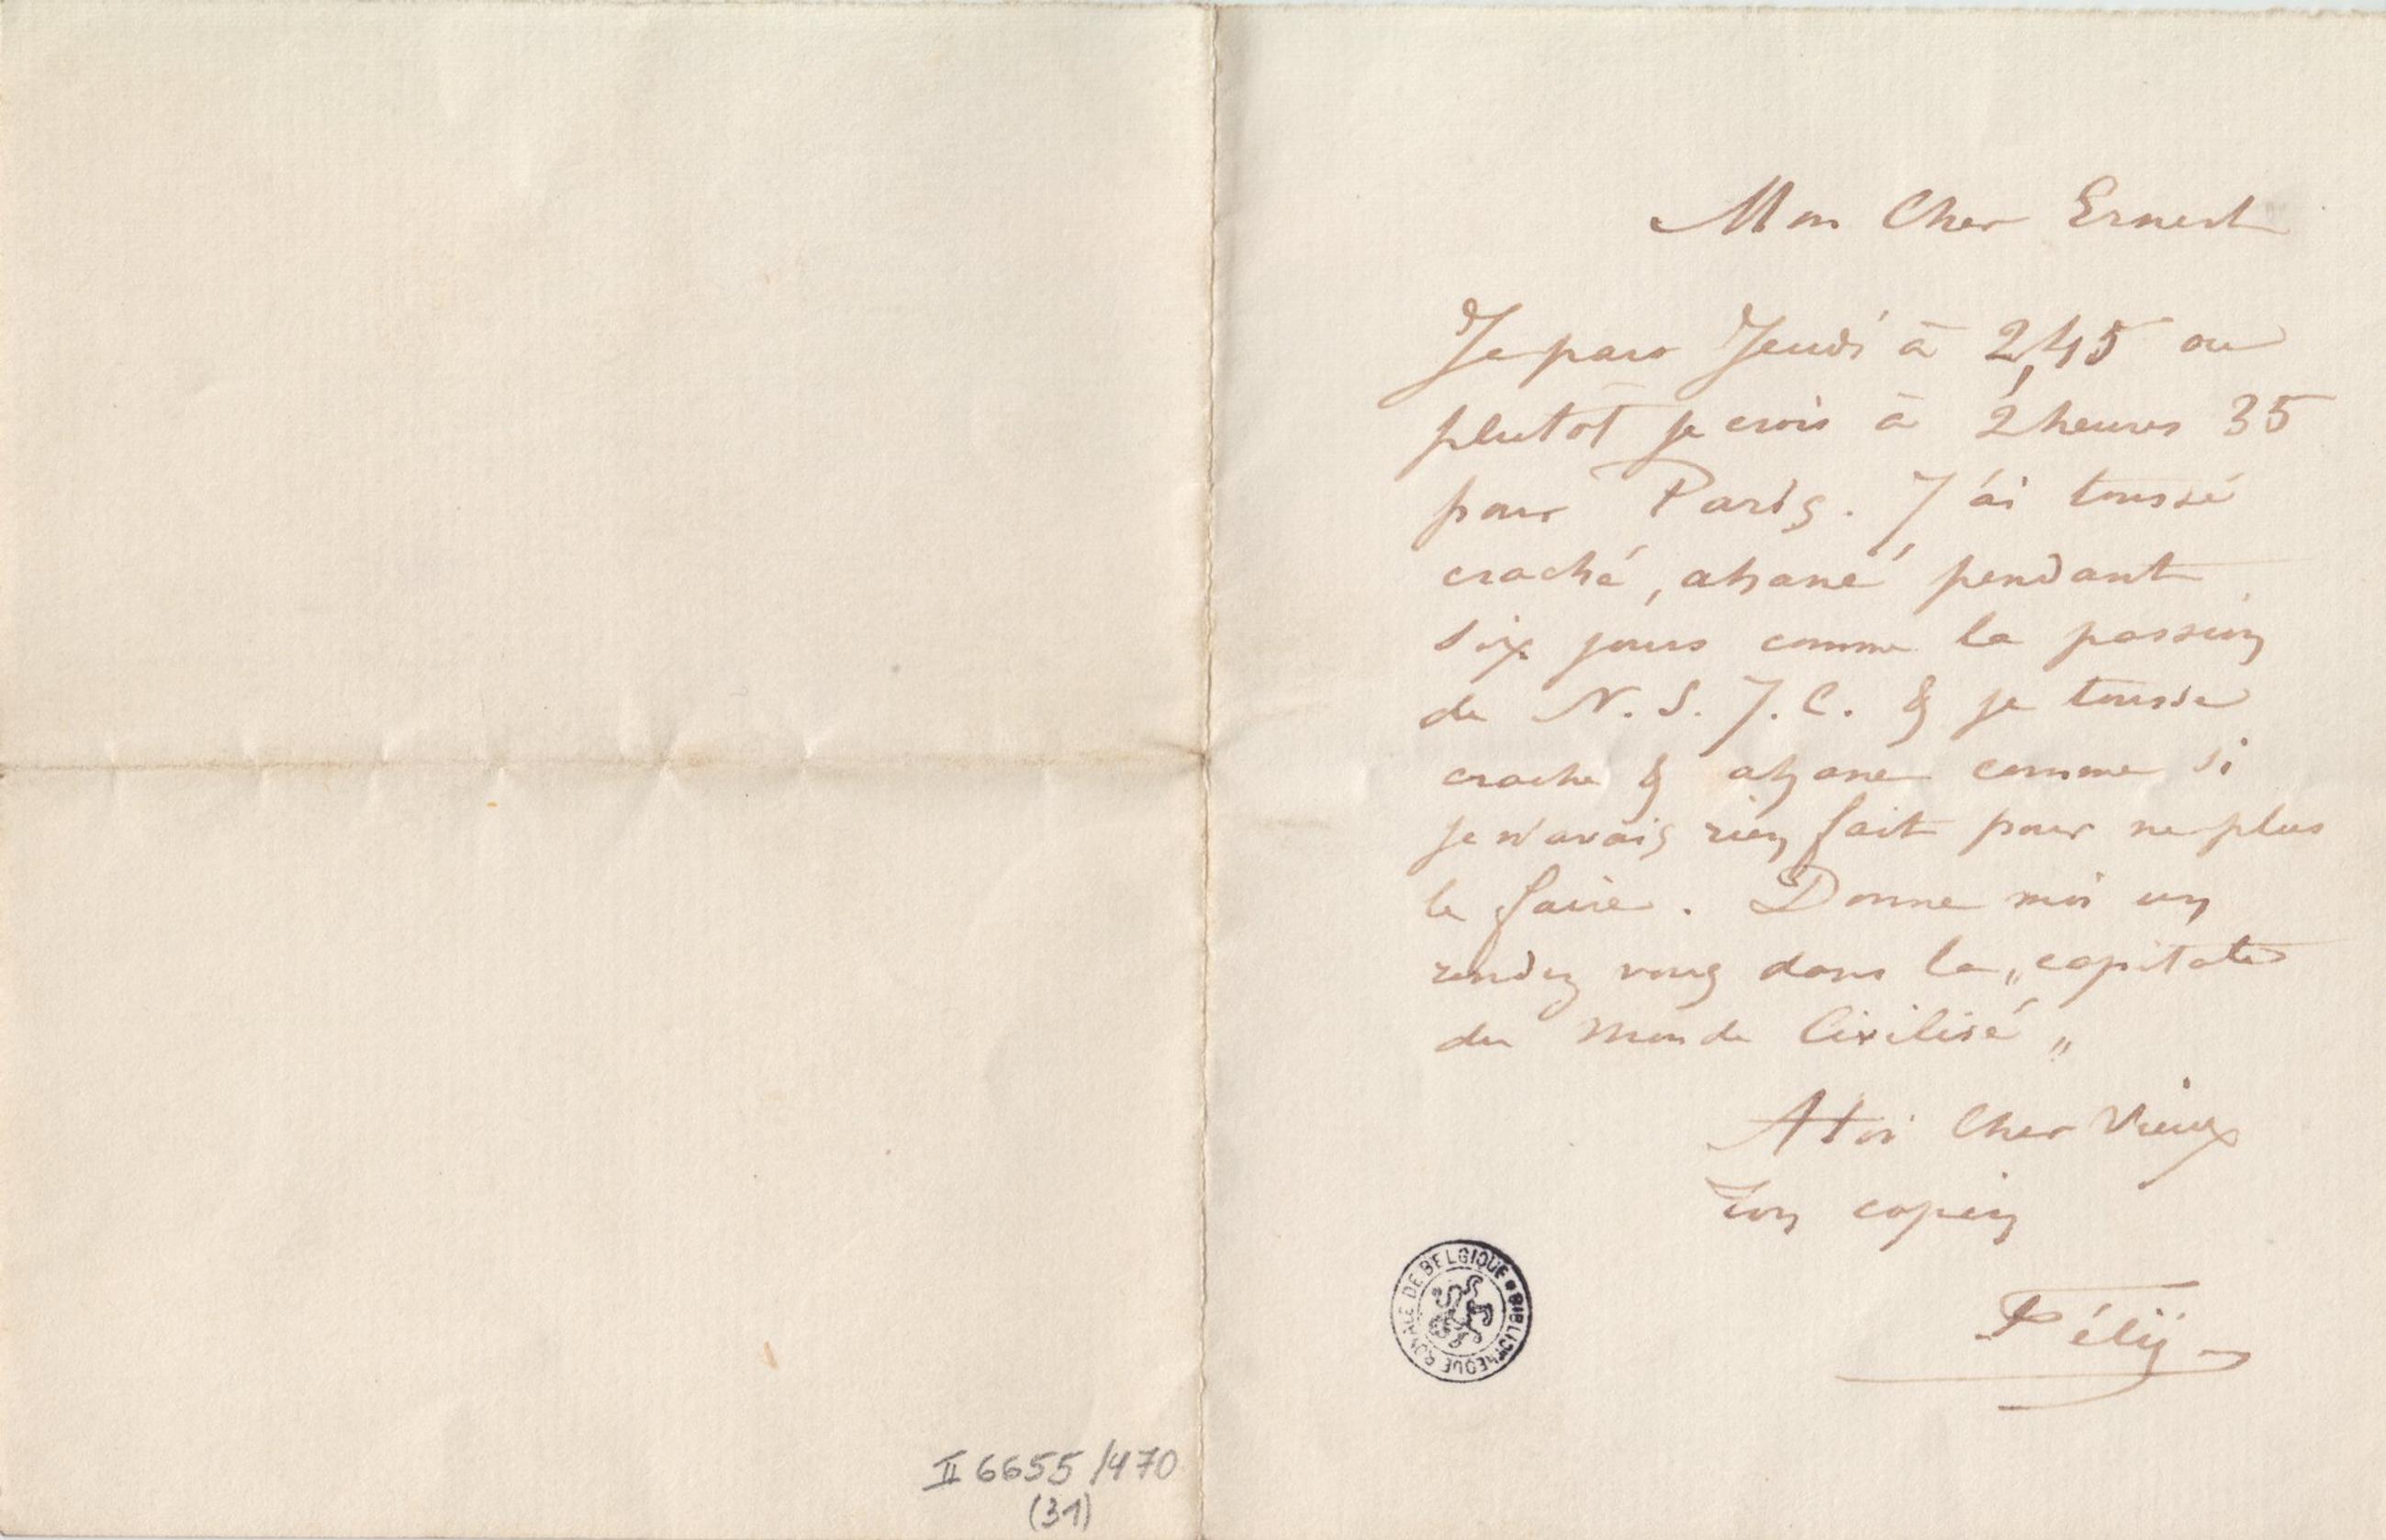 Mon Cher Ernest
Je pars Jeudi à 2,45 ou
plutôt je crois à 2 heures 35
pour Paris. J'ai toussé,
craché, ahané pendant
six jours comme la passion
de N. S. J. C. & je tousse
crache & ahane comme si
je n'avais rien fait pour ne plus
le faire. Donne moi un
rendez vous dans la „capitale
du Monde Civilisé„
A toi Cher Vieux
Ton copin
Fély
BIBLIOTHEQUE ROYALE DE BELGIQUE
II 6655/470
(31)